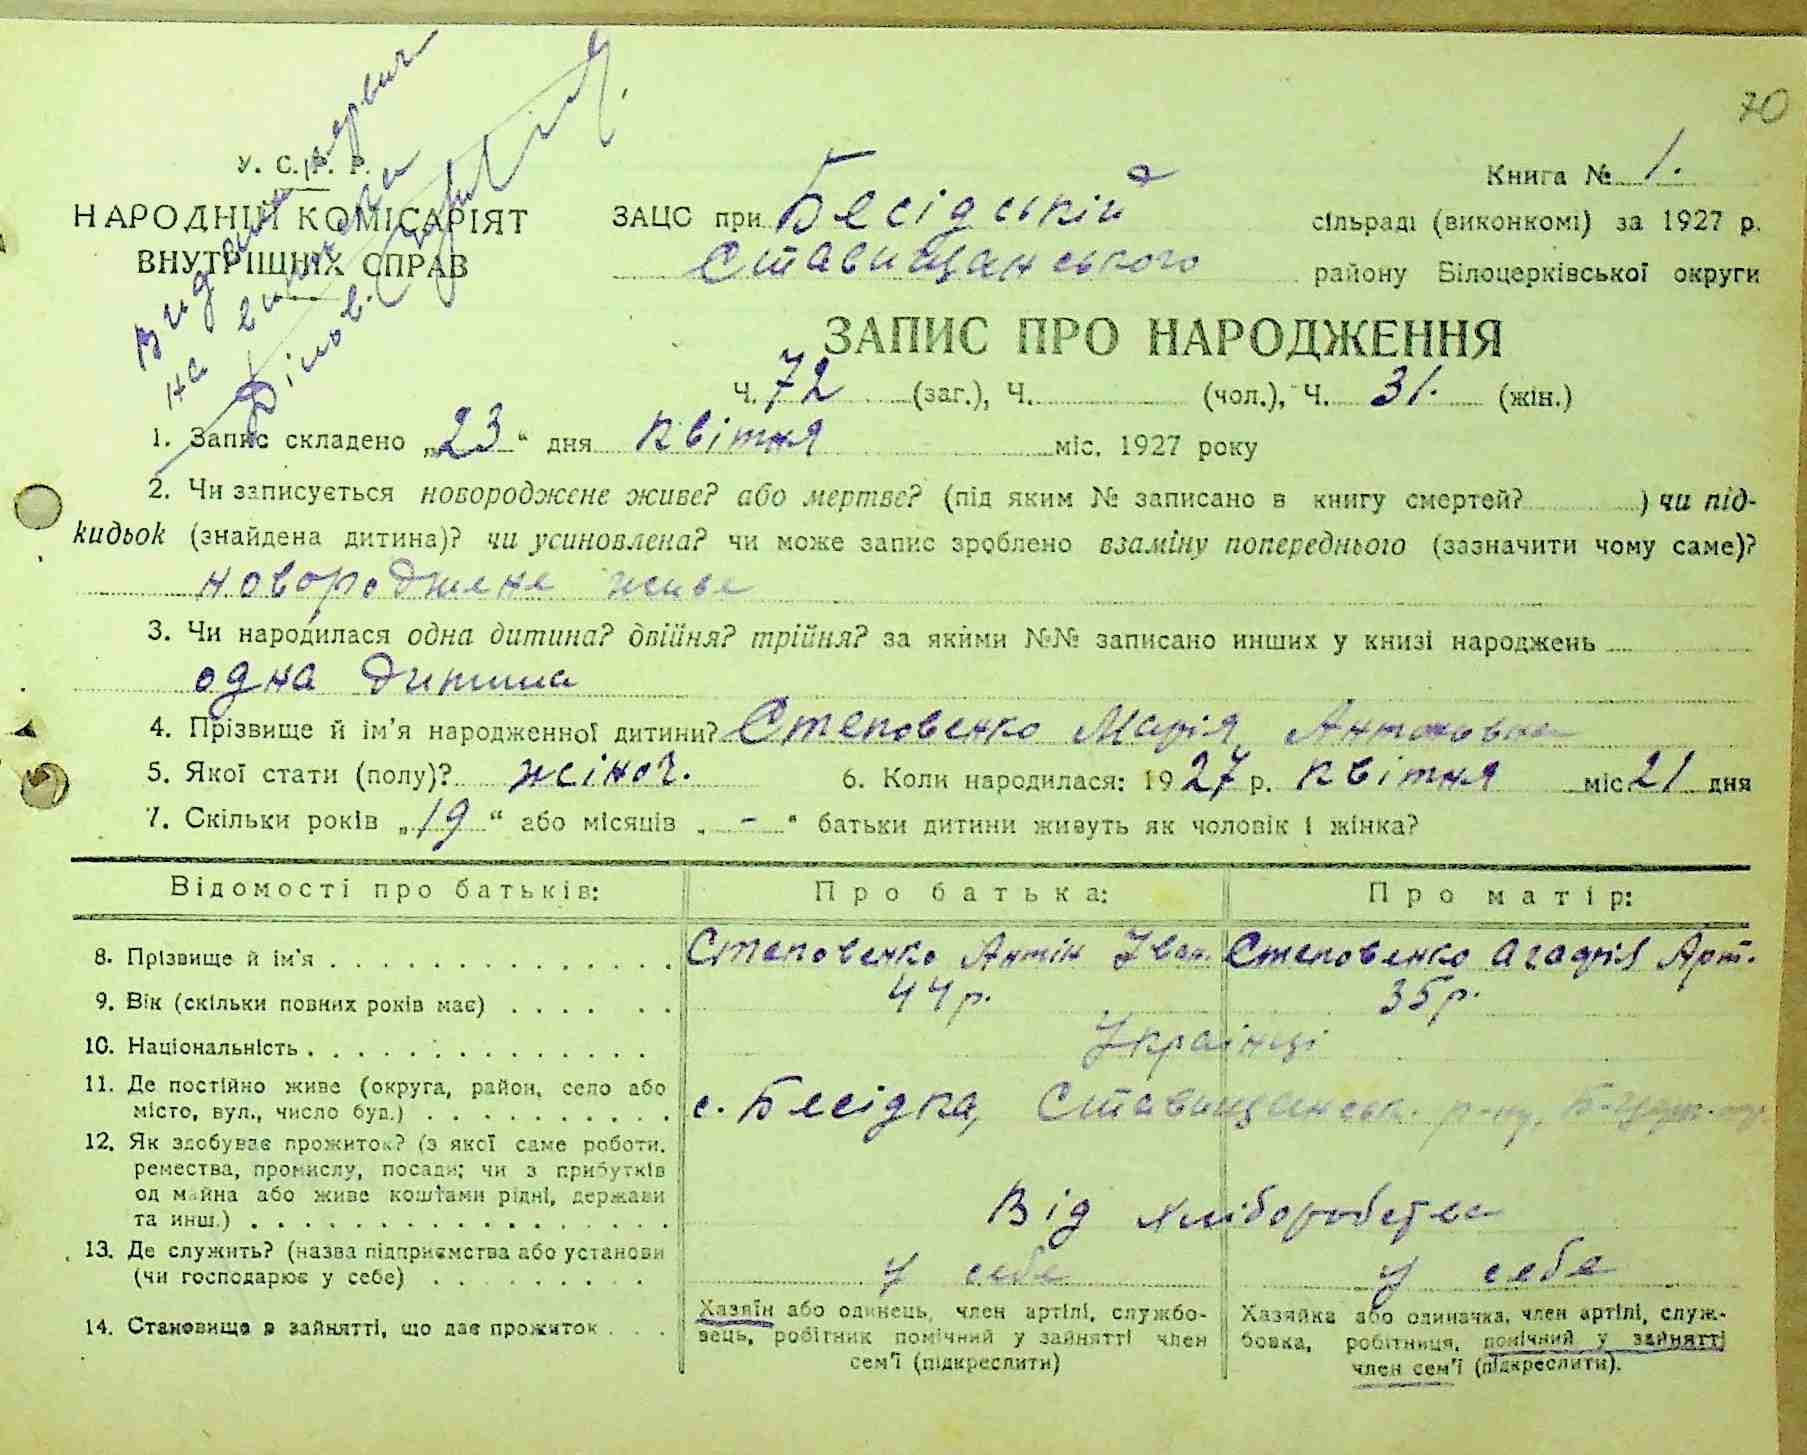 70
У. С. Р. Р.
НАРОДНІЙ КОМІСАРІЯТ
ВНУТРІШНІХ СПРАВ
Книга № 1.
ЗАЦС при Бесідській сільраді (виконкомі) за 1927 р.
Ставищанського району Білоцерківської округи
ЗАПИС ПРО НАРОДЖЕННЯ
Ч. 72 (заг.), Ч. (чол.), Ч. 31. (жін.)
1. Запис складено „23“ дня квітня міс. 1927 року
2. Чи записується новороджене живе? або мертве? (під яким № записано в книгу смертей? ) чи під-
кидьок (знайдена дитина)? чи усиновлена? чи може запис зроблено взаміну попереднього (зазначити чому саме)?
новороджене живе
3. Чи народилася одна дитина? двійня? трійня? за якими №№ записано инших у книзі народжень
одна дитина
4. Прізвище й ім'я народженної дитини? Степовенко Марія Антоновна
5. Якої стати (полу)? жіноч. 6. Коли народилася: 1927 р. квітня міс. 21 дня
7. Скільки років „19“ або місяців „-“ батьки дитини живуть як чоловік і жінка?
Відомості про батьків: Про батька: Про матір:
8. Прізвище й ім'я . . . . . . . . . . . . . . Степовенко Антін Іван. Степовенко Агафія Арт.
9. Вік (скільки повних років має) . . . . . . 44 р. 35 р.
10. Національність . . . . . . . . . . . . . . Українці
11. Де постійно живе (округа, район, село або
місто, вул., число буд.) . . . . . . . . . . с. Бесідка, Ставищанськ. р-ну,
12. Як здобуває прожиток? (з якої саме роботи,
ремества, промислу, посади; чи з прибутків
од майна або живе коштами рідні, держави
та инш.) . . . . . . . . . . . . . . . . . . Від хліборобства
13. Де служить? (назва підприємства або установи
(чи господарює у себе) . . . . . . . . . у себе у себе
14. Становище в зайнятті, що дає прожиток . . . Хазяїн або одинець, член артілі, службо-
вець, робітник помічний у зайнятті член
сем'ї (підкреслити)
Хазяйка або одиначка, член артілі, служ-
бовка, робітниця, помічний у зайнятті
член сем'ї (підкреслити).